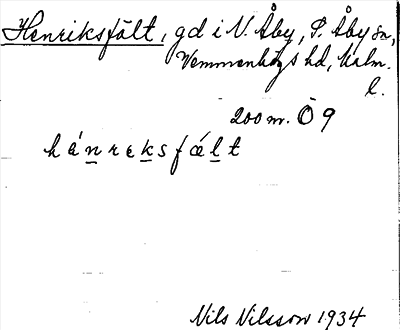 Henriksfält, gd i N. Åby, S. Åby sn,
Vemmenhögs hd, Malm.
l.
200 m. Ö 9
hánreksfált
Nils Nilsson 1934